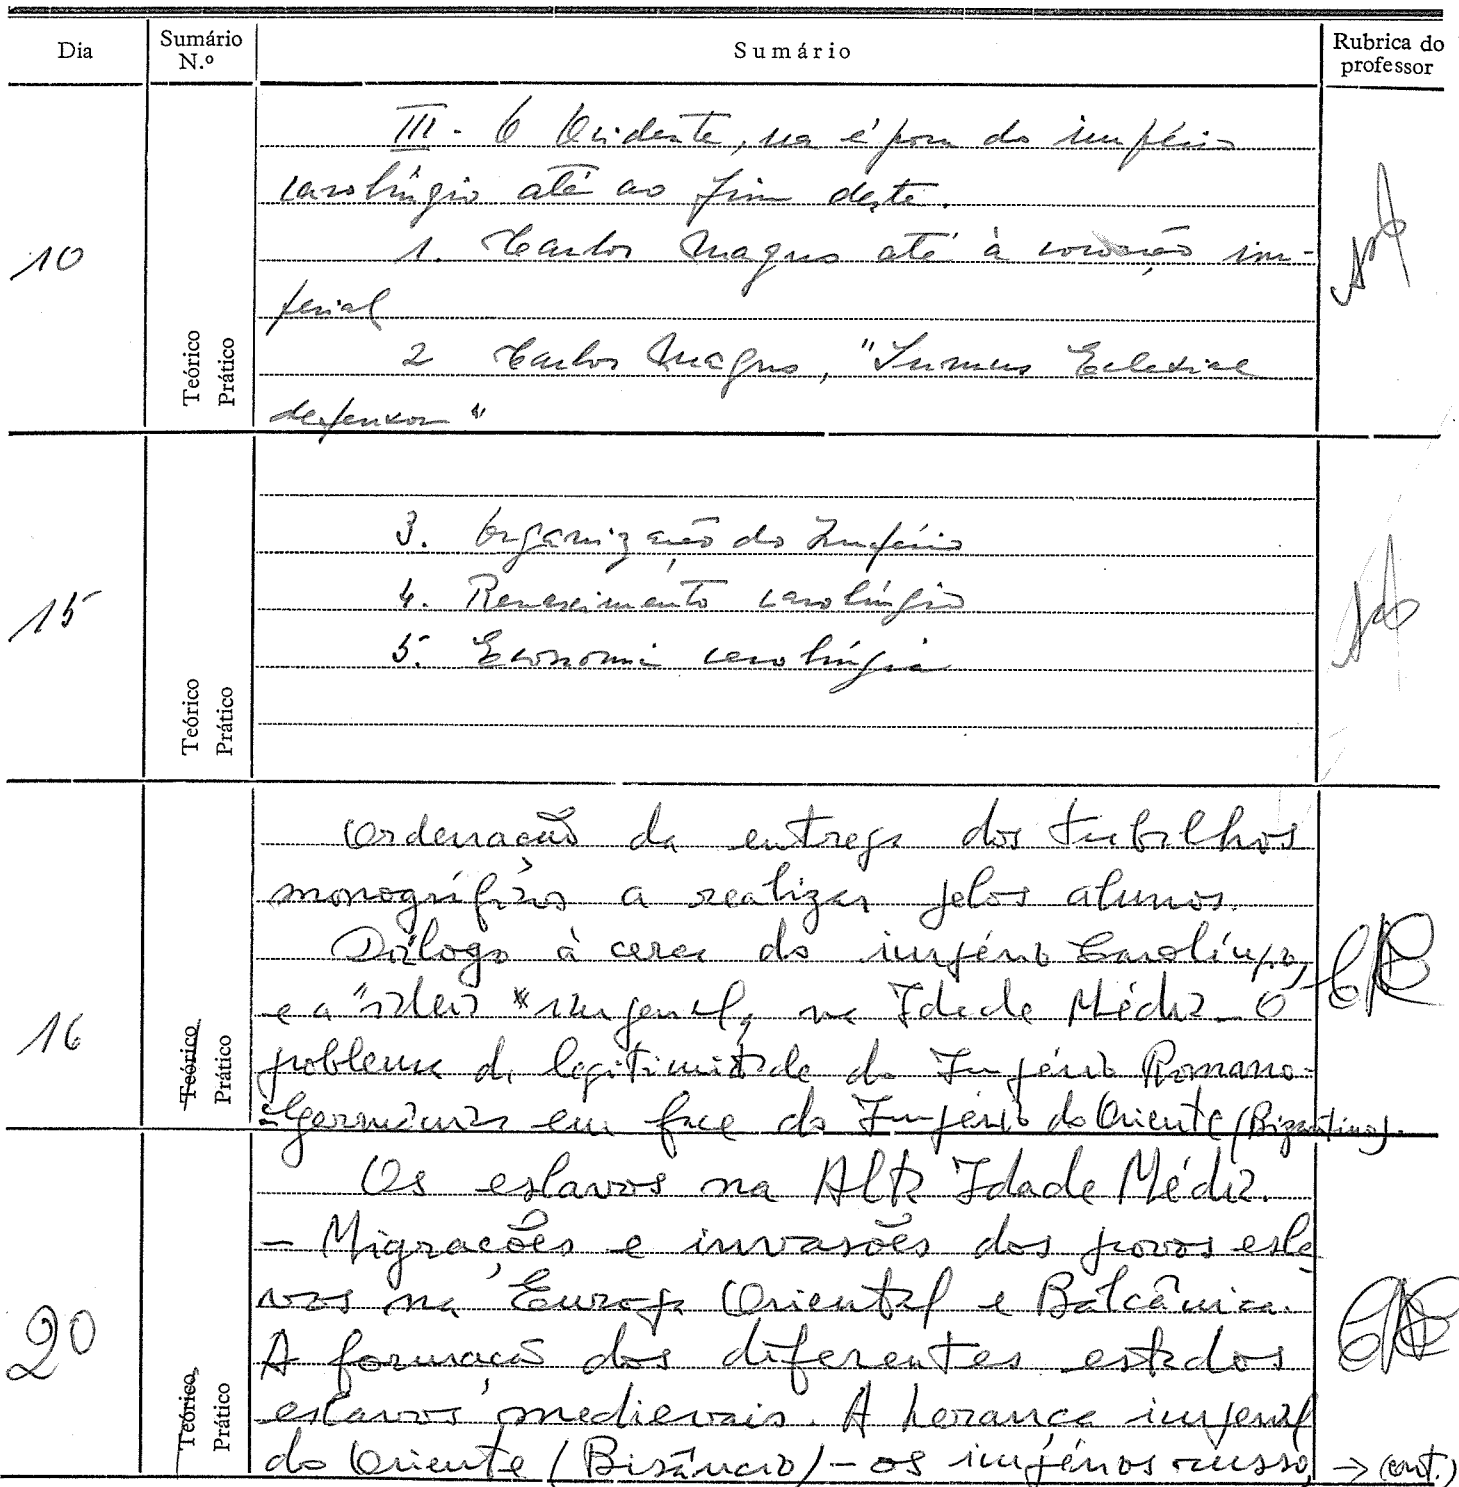 Dia
Sumário N.º
Sumário
Rubrica do professor
10
Teórico
Prático
III - O Ocidente, na época do império
carolíngio até ao fim deste.
1. Carlos Magno até à coroação im-
perial
2 Carlos Magno, "Summus Eclesiae
defensor"
15
Teórico
Prático
3. Organização do Império
4. Renascimento carolíngio
5. Economia carolíngia
16
Teórico
Prático
Ordenação da entrega dos trabalhos
monográficos a realizar pelos alunos.
Diálogo à cerca do império Carolíngio,
e a "ideia" imperial, na Idade Média. O
problema da legitimidade do Império Romano-
-Germânico em face do Império do Oriente (Bizantino).
20
Teórico
Prático
Os eslavos na Alta Idade Média.
- Migrações e invasões dos povos esla
vos na Europa Oriental e Balcânica.
A formação dos diferentes estados
eslavos medievais. A herança imperial
do Oriente (Bizâncio) - os impérios russo,
→ (cont.)